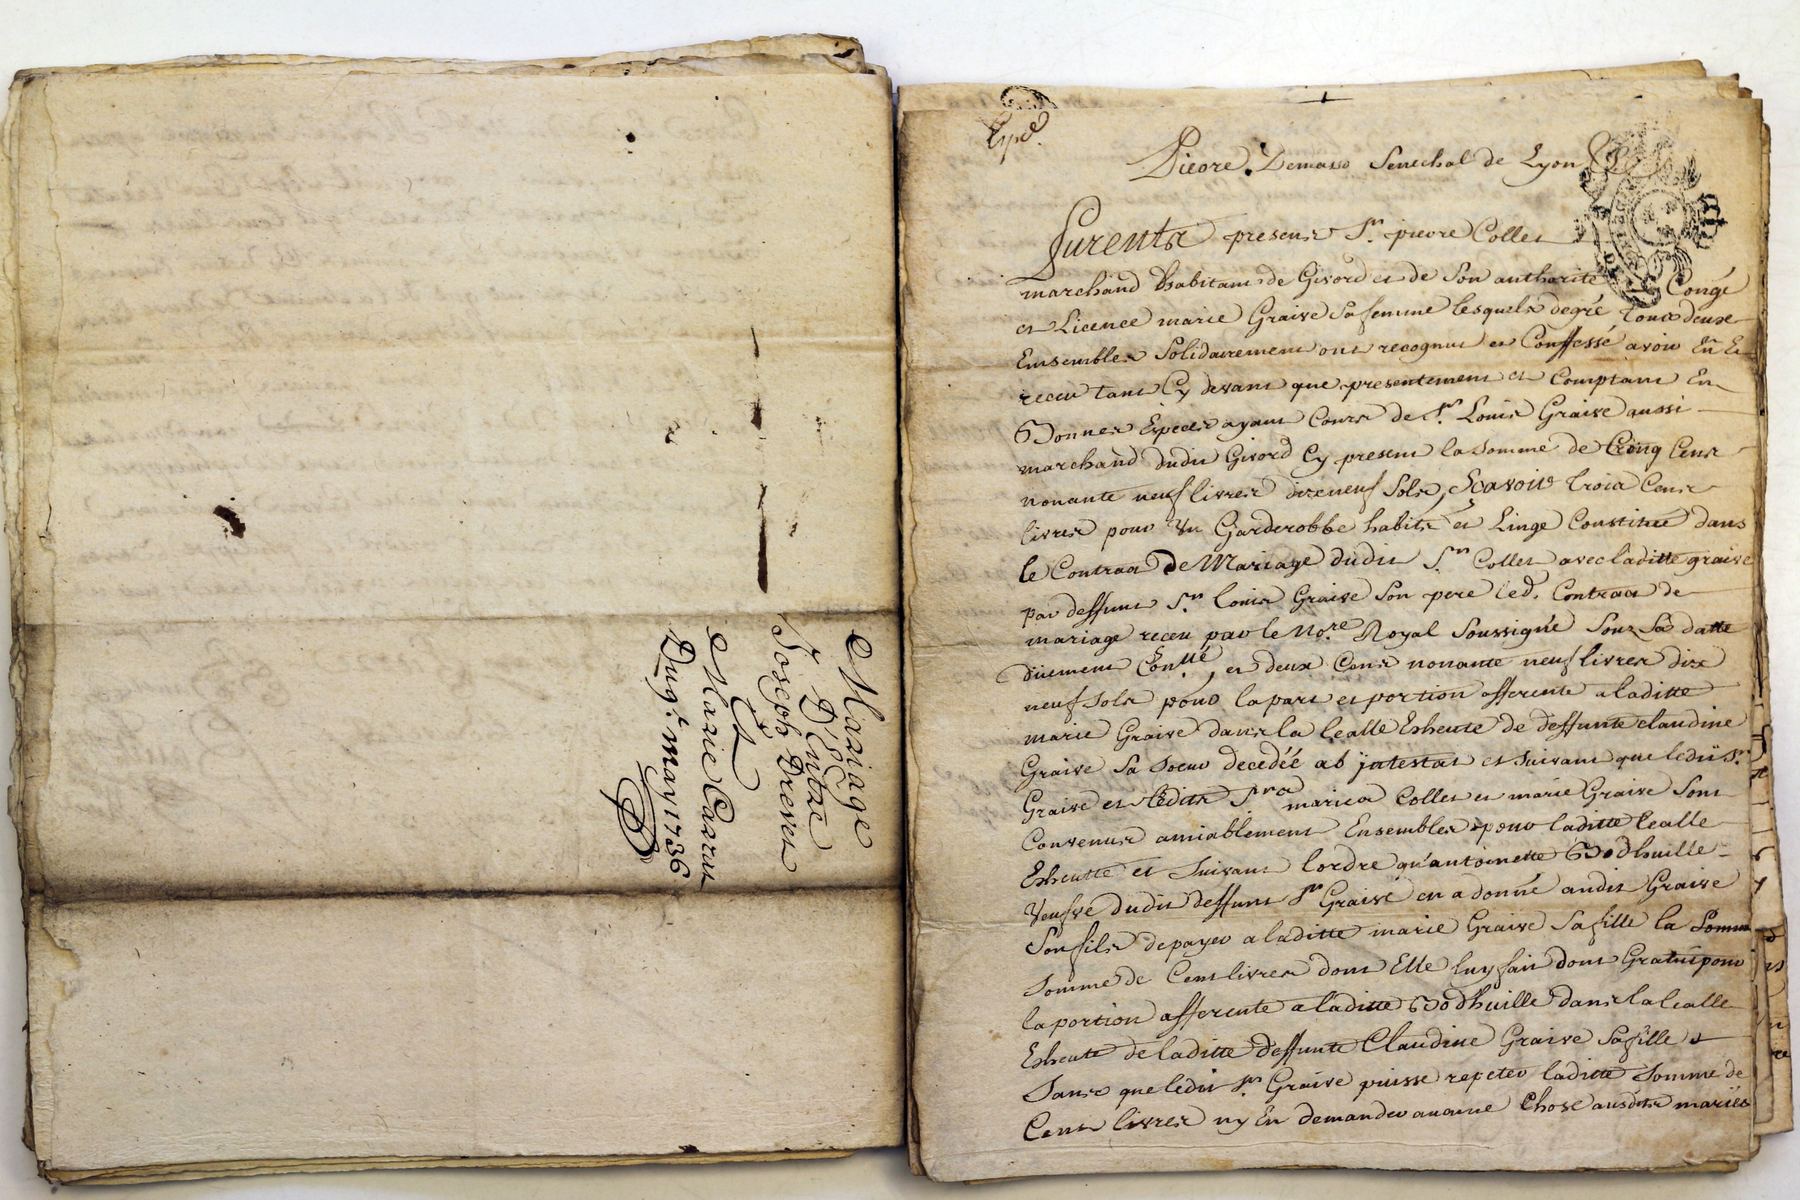 Mariage
D'Entre
Joseph Drevet
Et
Marie Carrat
Du 9e. may 1736
Exped.
Pierre Demasso Senechal de Lyon
Furents presens Sr. pierre Collet
marchand habitant de Givord et de Son authorité Congé
et Licence marie Graive Sa femme lesquels de gré tous deux
Ensembles Solidairement ont recognus et Confessé avoir Eü Et
receu tant Cy devant que presentement et Comptant En
Bonnes Especes ayant Cours de Sr. Louis Graive aussi
marchand dudit Givord Cy present la Somme de Cinq Cens
nonante neuf livres dixneuf Sols, Scavoir trois Cens
livres pour Un Garderobbe habits et Linge Constitué dans
le Contract De Mariage dudit Sr. Collet avec laditte graive
par deffunt Sr. louis Graive Son pere led. Contract de
mariage receu par le Nore. Royal Soussigné Sous Sa datte
düement Conllé, et deux Cens nonante neuf livres dix
neuf Sols pour la part et portion afferente a laditte
marie Graive dans la lealle Exheute de deffunte claudine
Graive Sa Soeur decedéé ab jntestat et Suivant que ledit Sr.
Graive et lédits Srs mariés Collet et marie Graive Sont
Convenus amiablement Ensembles pour laditte lealle
Exheutte et Suivant lordre qu'antoinette Bodhuille
Veufve dudit deffunt Sr Graive en a donné audit Graive
Son fils de payer a laditte marie Graive Sa fille la Somm
Somme de Cent livres dont Elle luy fait dont Gratuit pour
la portion afferente a laditte Bodhuille dans la lealle
Exheute de laditte deffunte Claudine Graive Sa fille
Sans que ledit Sr. Graive puisse repeter laditte Somme de
Cent livres ny En demander aucune Chose ausdits mariés